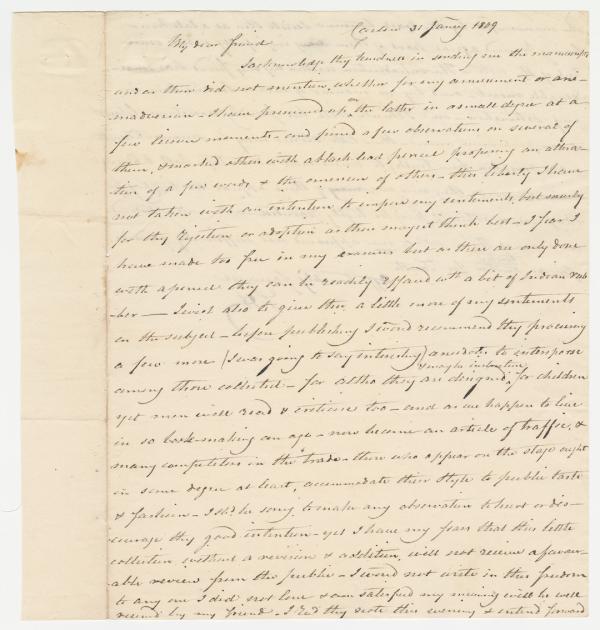 Carlow 31 Janry 1809
My dear friend
I acknowledge thy kindness in sending me the manuscripts
and as thou did not mention whether for my amusement or ani-
madversion - I have presumed upon the latter in a small degree at a
few leisure moments - and pen'd a few observations on several of
them, & marked others with a black lead pencil proposing an altera-
tion of a few words & the omission of others - this liberty I have
not taken with an intention to impose my sentiments, but merely
for thy rejection or adoption as thou mayest think best - I fear I
have made too free in my erasures but as these are only done
with a pencil they can be readily effaced with a bit of Indian rub-
-ber — I wish also to give thee a little more of my sentiments
on the subject - before publishing I would recommend thy procuring
a few more (I was going to say interesting) anecdotes to intersperse
& maybe instructive
among those collected - for altho they are designed for children
yet men will read & criticise too - and as we happen to live
in so book-making an age - now become an article of traffic, &
many competitors in the trade - those who appear on the stage ought
in some degree at least, accommodate their style to public taste
& fashion - I shd be sorry to make any observation to hurt or dis-
courage thy good intention - yet I have my fears that this little
collection without a revision & addition, will not receive a favour-
able review from the public - I would not write in this freedom
to any one I did not love & am satisfied my meaning will be well
received by my friend - I recd thy note this evening & intend forward